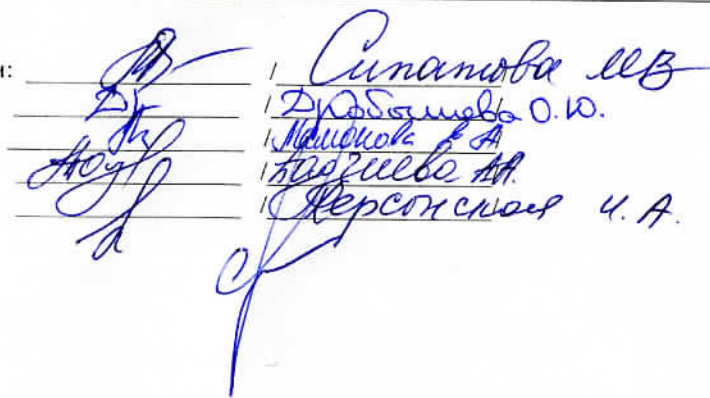 и: / Сипатова МВ
/ Дробышева О.Ю.
/ Мамонова Е А
/ А.А.
/ Херсонская И. А.